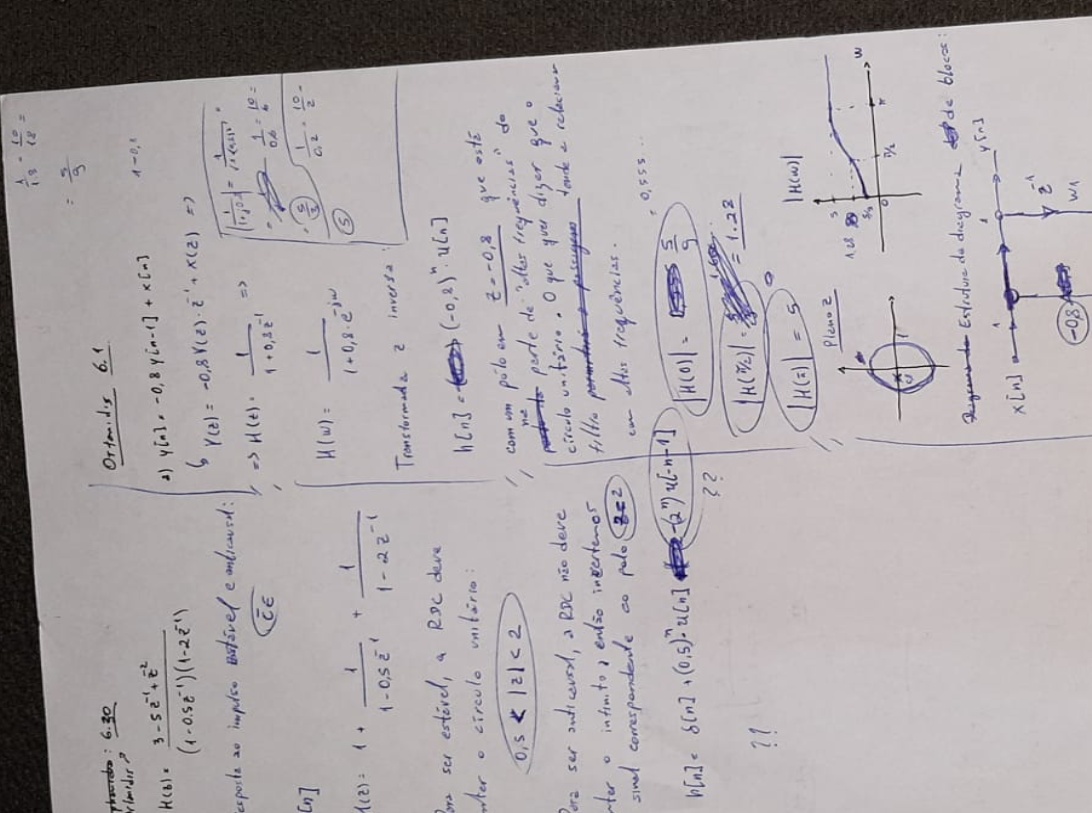 6.30
H(z) = 3 - 5z⁻¹ + z⁻² / (1 - 0.5z⁻¹)(1 - 2z⁻¹)
resposta ao impulso estável e anticausal:
CE
[n]
H(z) = 1 + 1 / 1 - 0,5z⁻¹ + 1 / 1 - 2z⁻¹
Para ser estável, a RDC deve
conter o círculo unitário:
0,5 < |z| < 2
Para ser anticausal, a RDC não deve
conter o infinito, então invertemos
sinal correspondente ao polo z=2
h[n] = δ[n] + (0.5)ⁿ·u[n] -(2ⁿ)u[-n-1]
??
??
6.1
a) y[n] = -0,8 y[n-1] + x[n]
Y(z) = -0,8Y(z)·z⁻¹ + X(z) =>
=> H(z) = 1 / 1 + 0,8z⁻¹ =>
H(ω) = 1 / 1 + 0,8·e⁻ʲʷ
Transformada z inversa:
h[n] = (-0,8)ⁿ·u[n]
com um pólo em z = -0,8 que está
na parte de "altas frequências" do
círculo unitário. O que quer dizer que o
filtro tende a relacionar
em altas frequências.
|H(0)| = 5/9 = 0,555...
|H(π/2)| = 1.28
|H(π)| = 5
Plano z
|H(ω)|
5
1.28
5/9
0
π/2
π
ω
Estrutura do diagrama de blocos:
x[n]
1
1
y[n]
z⁻¹
-0,8
W1
1/1.8 = 10/18
= 5/9
1-0,1
1/0,6 = 10/6 =
5/3
1/0,2 = 10/2
5